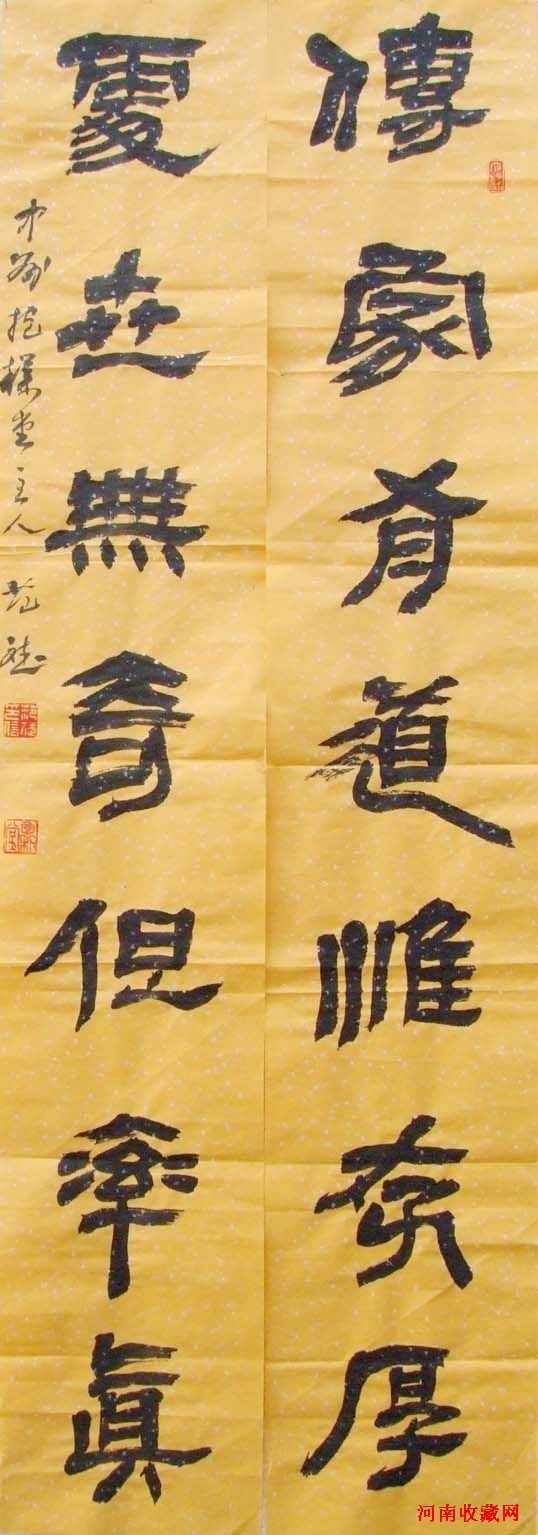 傳家有道惟存厚
處世無奇但率真
中州抱樸堂主人
河南收藏网